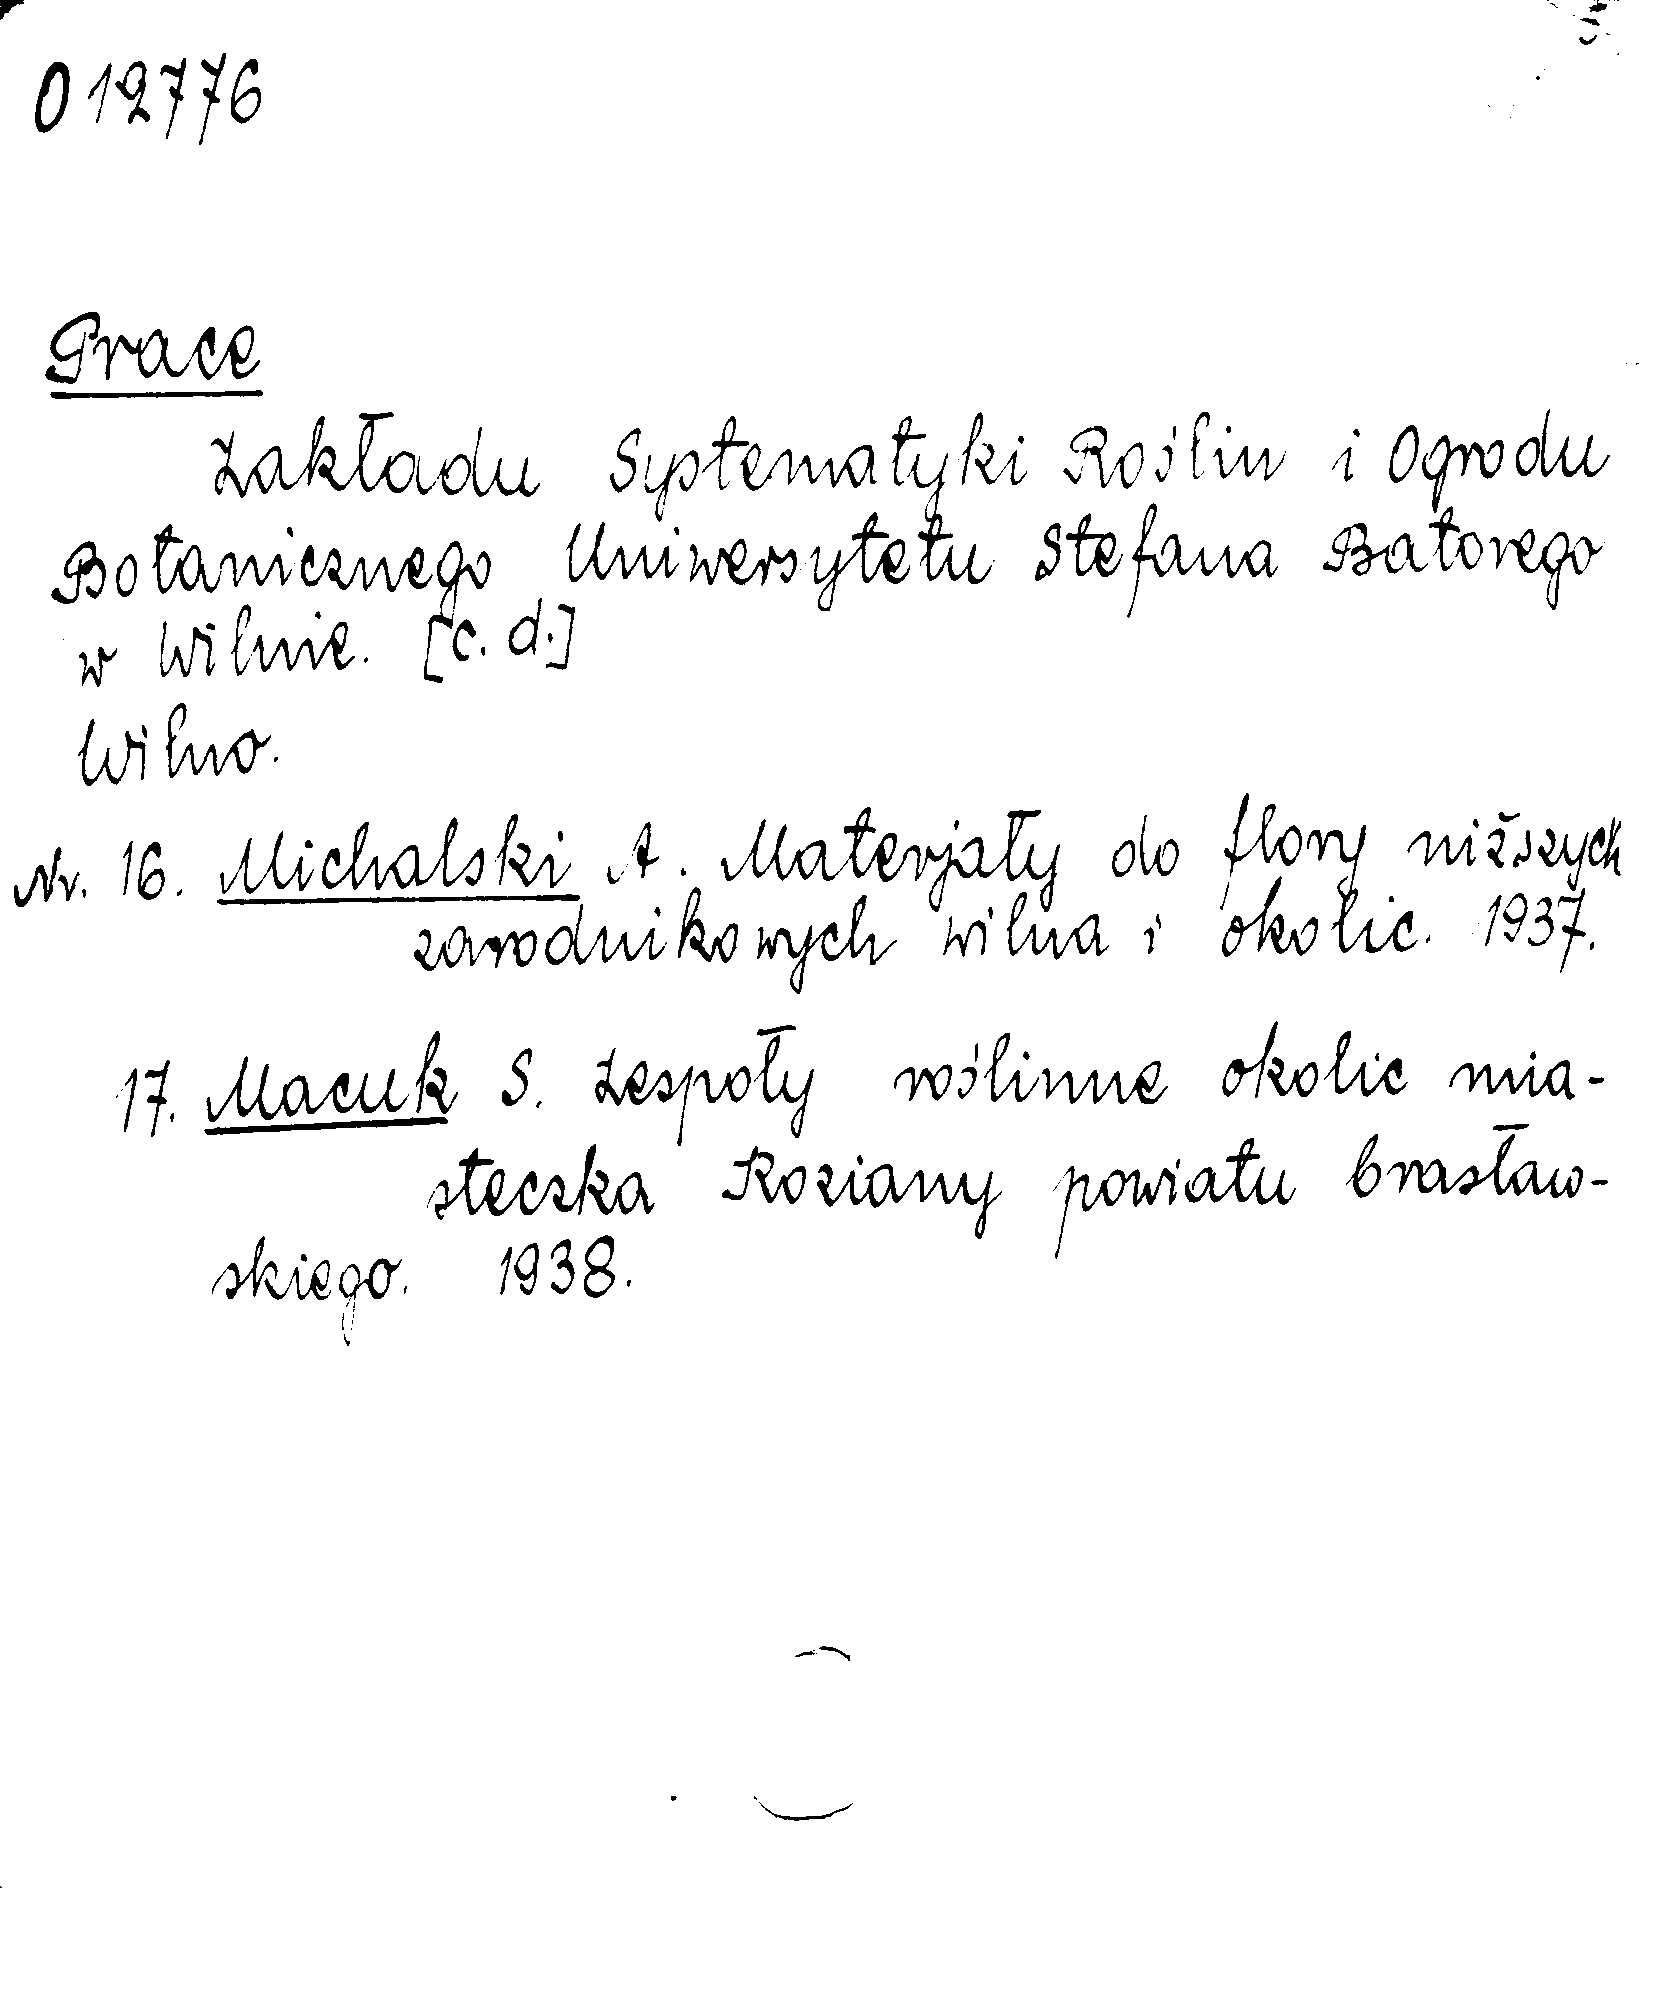 012776
Prace
Zakładu Systematyki Roślin i Ogrodu
Botanicznego Uniwersytetu Stefana Batorego
w Wilnie. [c. d.]
Wilno.
Nr. 16. Michalski A. Materjały do flory niższych
zarodnikowych Wilna i okolic. 1937.
17. Macuk S. Zespoły roślinne okolic mia-
steczka Koziany powiatu brasław-
skiego. 1938.